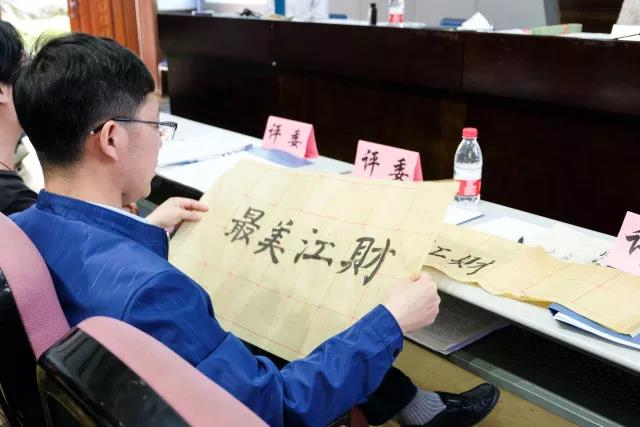 评委
评委
最美江財
江財
评